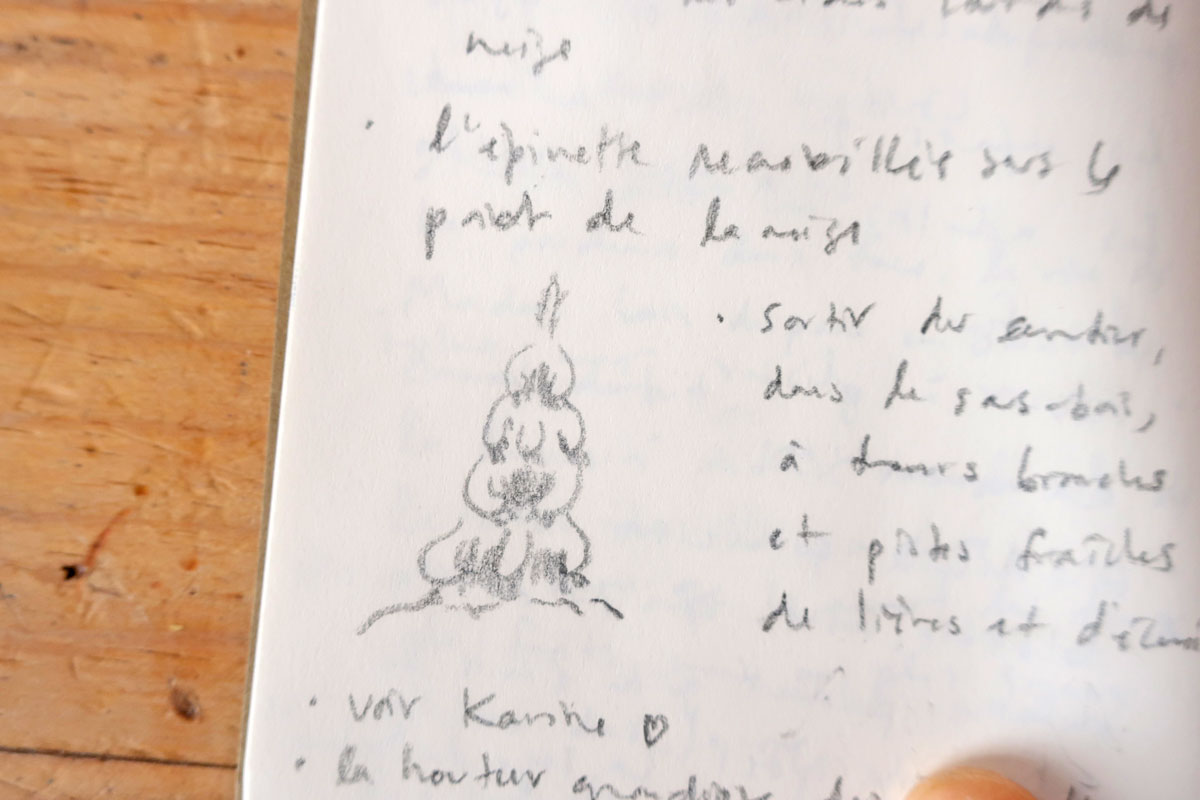 neige
· l'épinette recroquevillée sous le
poids de la neige
· sortir du sentier,
dans le sous-bois,
à travers branches
et pistes fraîches
de lièvres et
· voir Karine ♡
· la hauteur